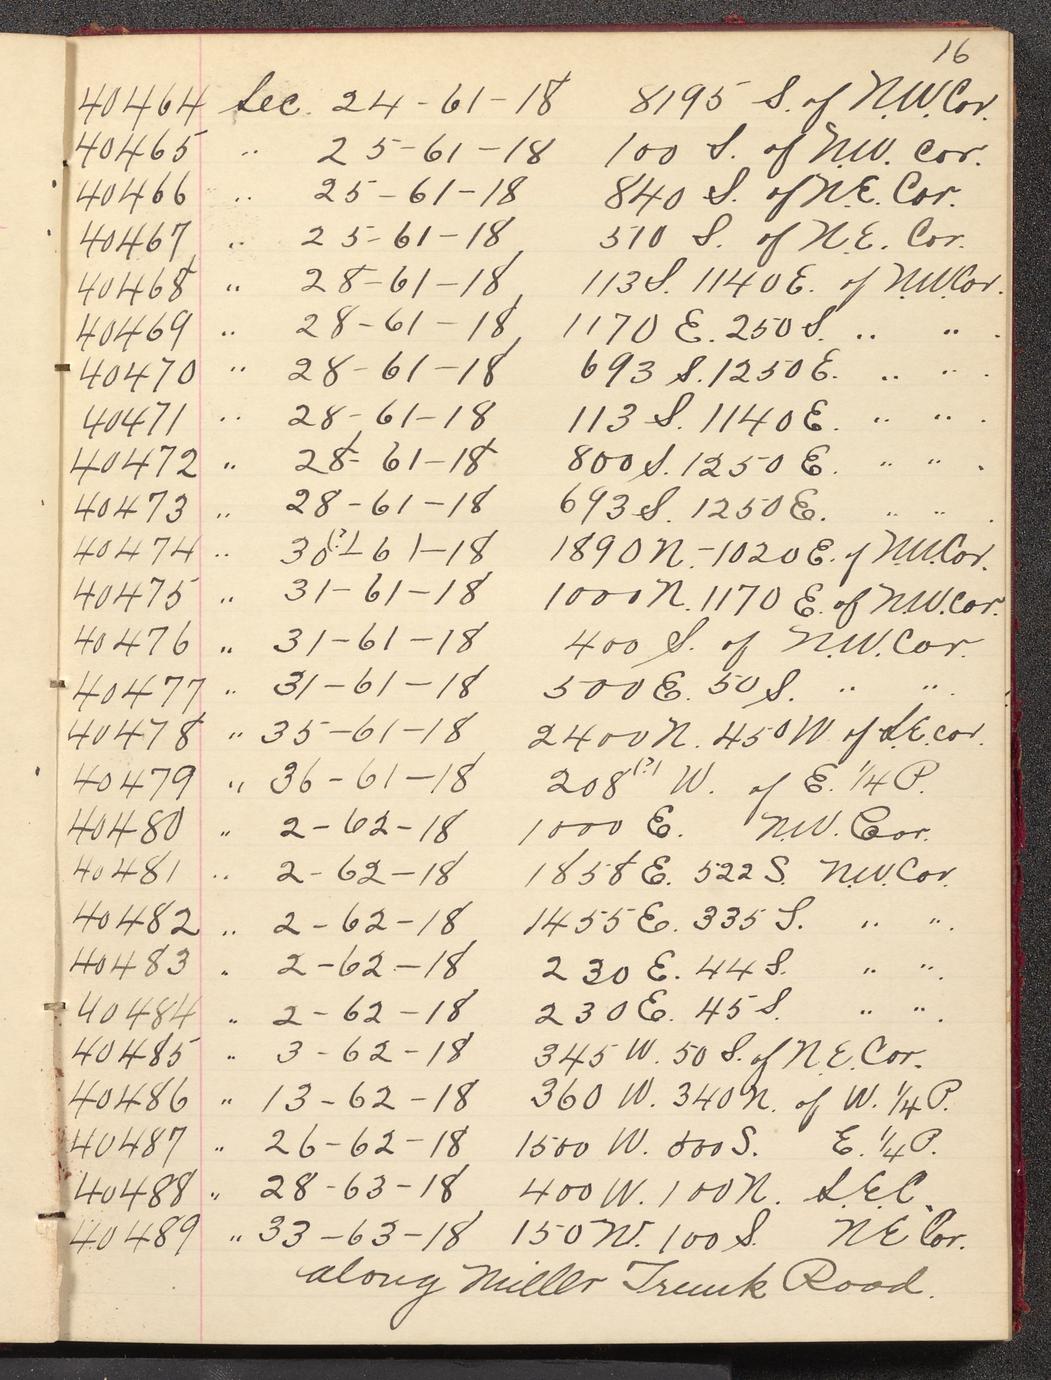 16
40464 Sec. 24-61-18 8195 S. of N.W. Cor.
40465 " 25-61-18 100 S. of N.W. Cor.
40466 " 25-61-18 840 S. of N.E. Cor.
40467 " 25-61-18 510 S. of N.E. Cor.
40468 " 28-61-18 113 S. 1140 E. of N.W. Cor.
40469 " 28-61-18 1170 E. 250 S. " " .
40470 " 28-61-18 693 S. 1250 E. " " .
40471 " 28-61-18 113 S. 1140 E. " " .
40472 " 28-61-18 800 S. 1250 E. " " .
40473 " 28-61-18 693 S. 1250 E. " " .
40474 " 30(?)-61-18 1890 N.-1020 E. of N.W. Cor.
40475 " 31-61-18 1000 N. 1170 E. of N.W. Cor.
40476 " 31-61-18 400 S. of N.W. Cor.
40477 " 31-61-18 500 E. 50 S. " " .
40478 " 35-61-18 2400 N. 450 W of S.E. cor.
40479 " 36-61-18 208(?) W. of E. 1/4 P.
40480 " 2-62-18 1000 E. N.W. Cor.
40481 " 2-62-18 1858 E. 522 S. N.W. Cor.
40482 " 2-62-18 1455 E. 335 S. " " .
40483 " 2-62-18 230 E. 44 S. " " .
40484 " 2-62-18 230 E. 45 S. " " .
40485 " 3-62-18 345 W. 50 S. of N.E. Cor.
40486 " 13-62-18 360 W. 340 N. of W. 1/4 P.
40487 " 26-62-18 1500 W. S. E. 1/4 P.
40488 " 28-63-18 400 W. 100 N. S.E.C.
40489 " 33-63-18 150 W. 100 S. N E Cor.
along Miller Trunk Road.